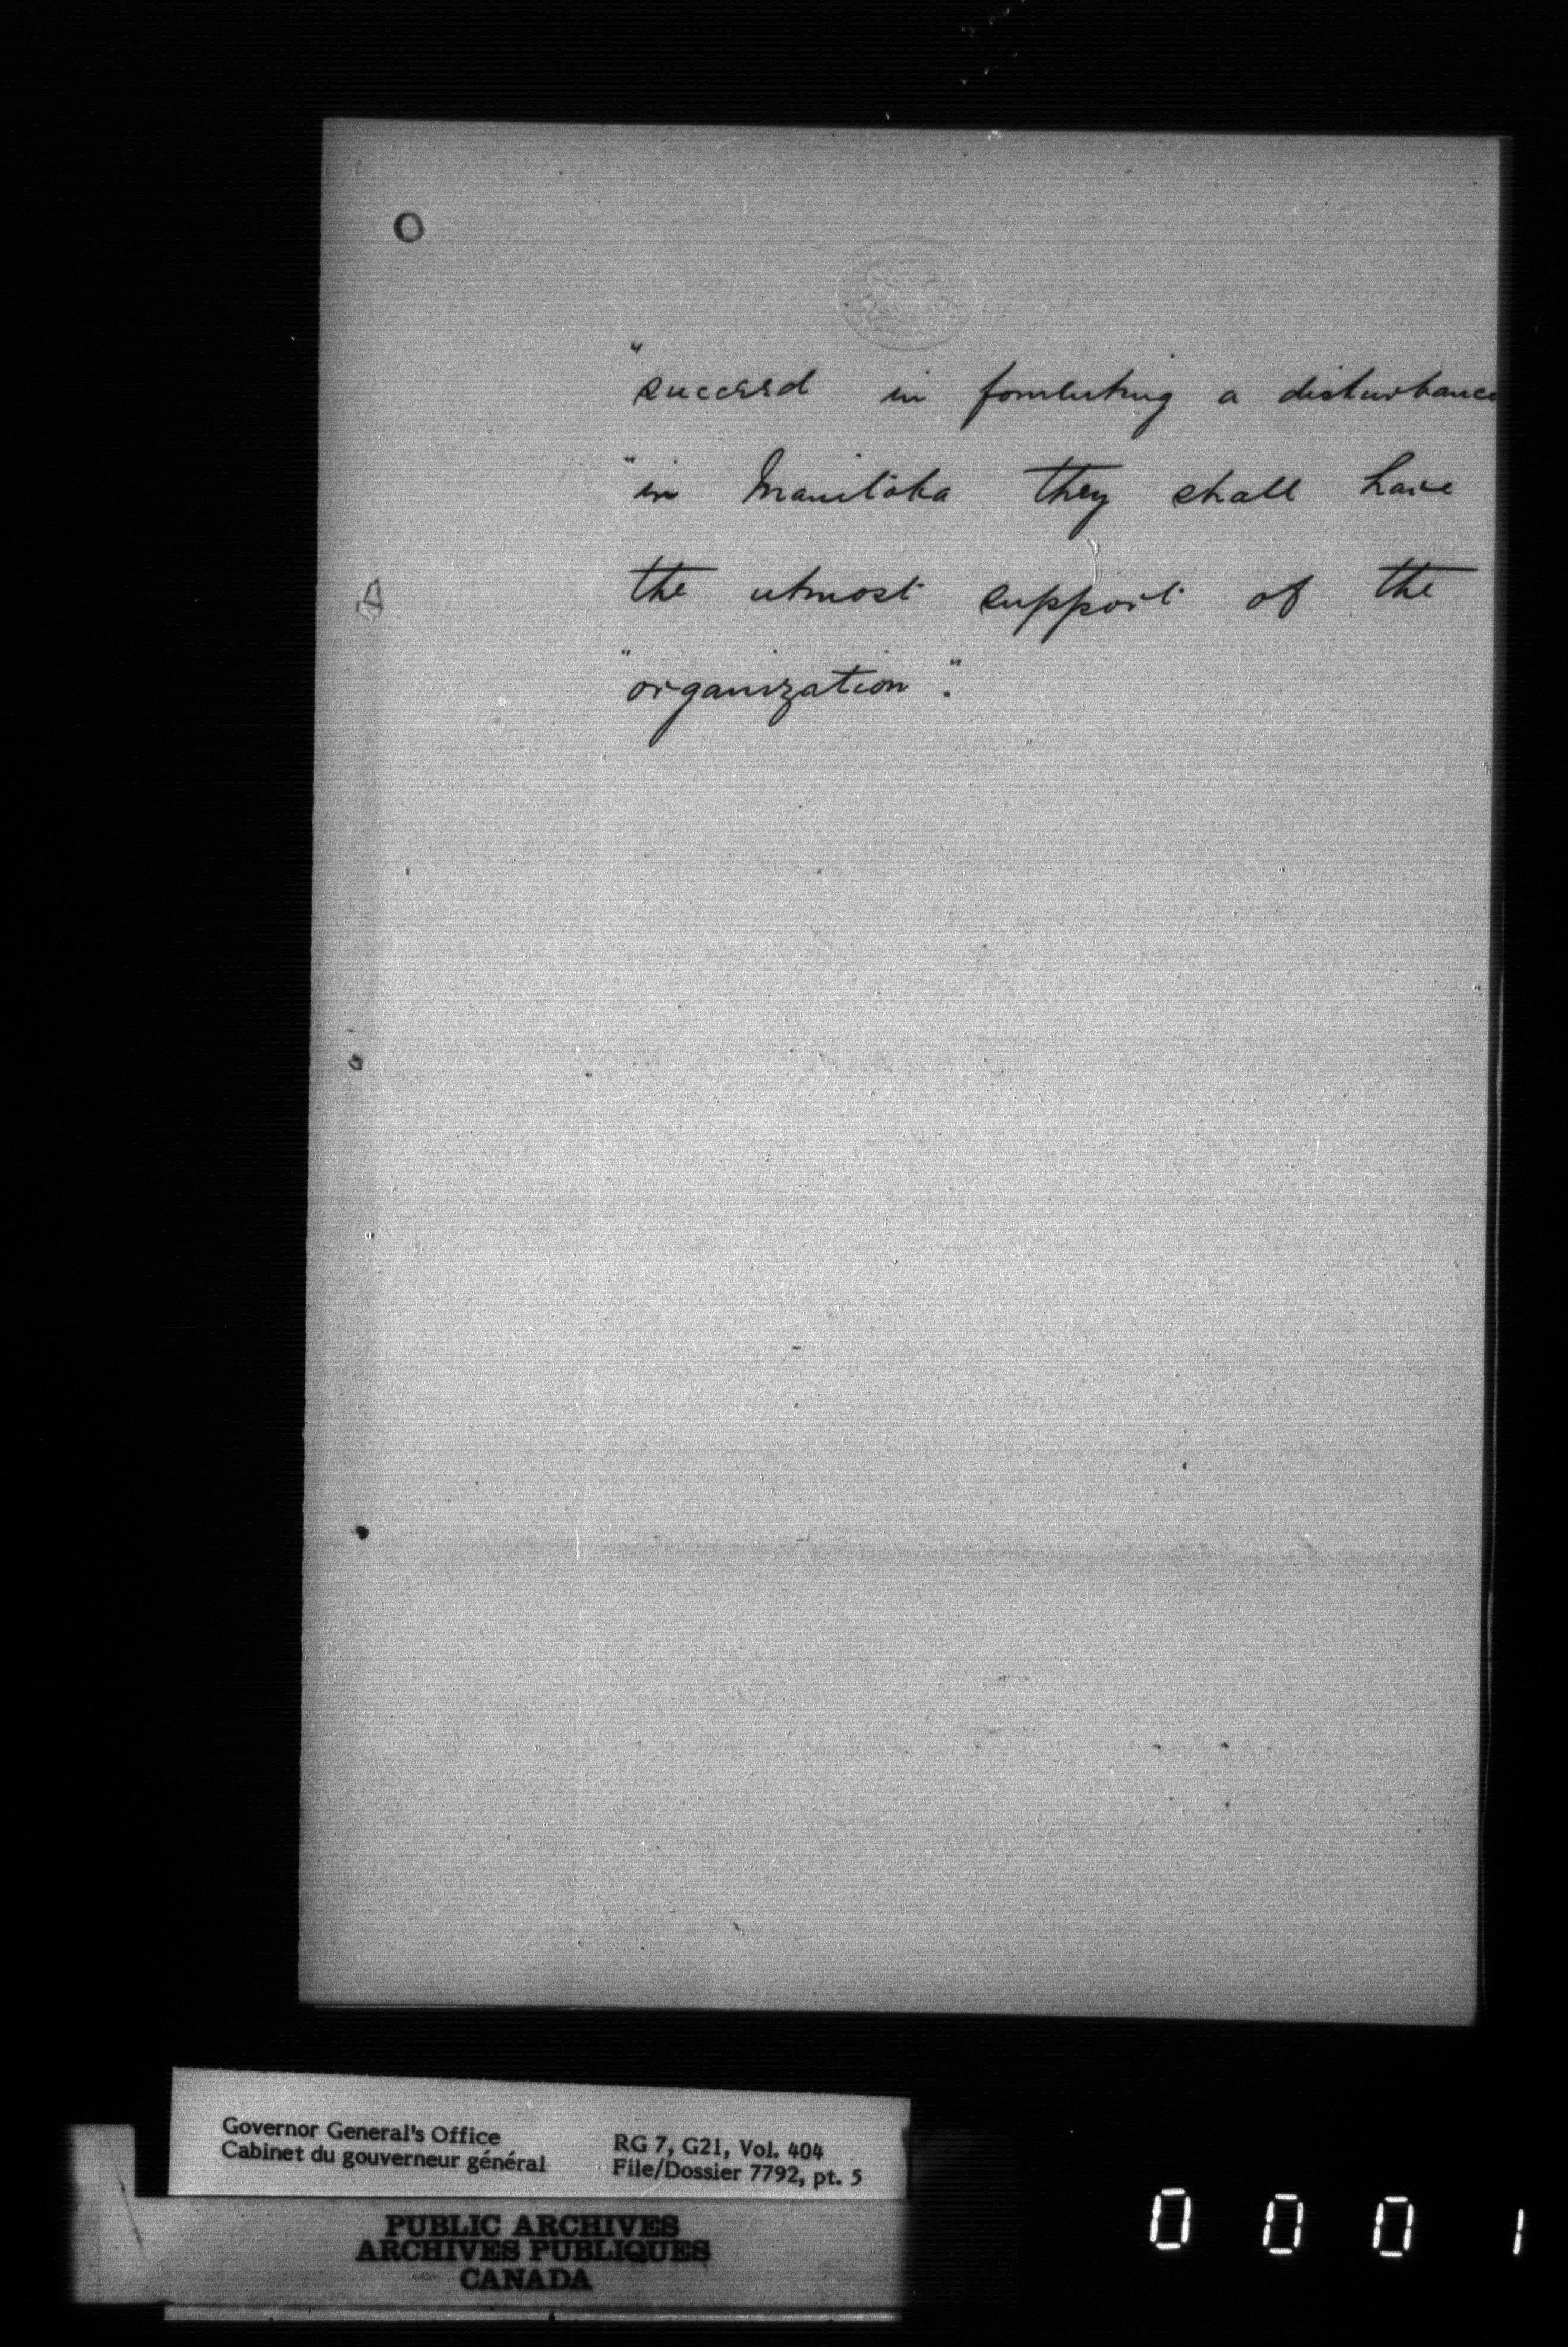 O
"succeed in fomenting a disturbance
"in Manitoba they shall have
the utmost support of the
"organization".
Governor General's Office
Cabinet du gouverneur général
RG 7, G21, Vol. 404
File/Dossier 7792, pt. 5
PUBLIC ARCHIVES
ARCHIVES PUBLIQUES
CANADA
0001